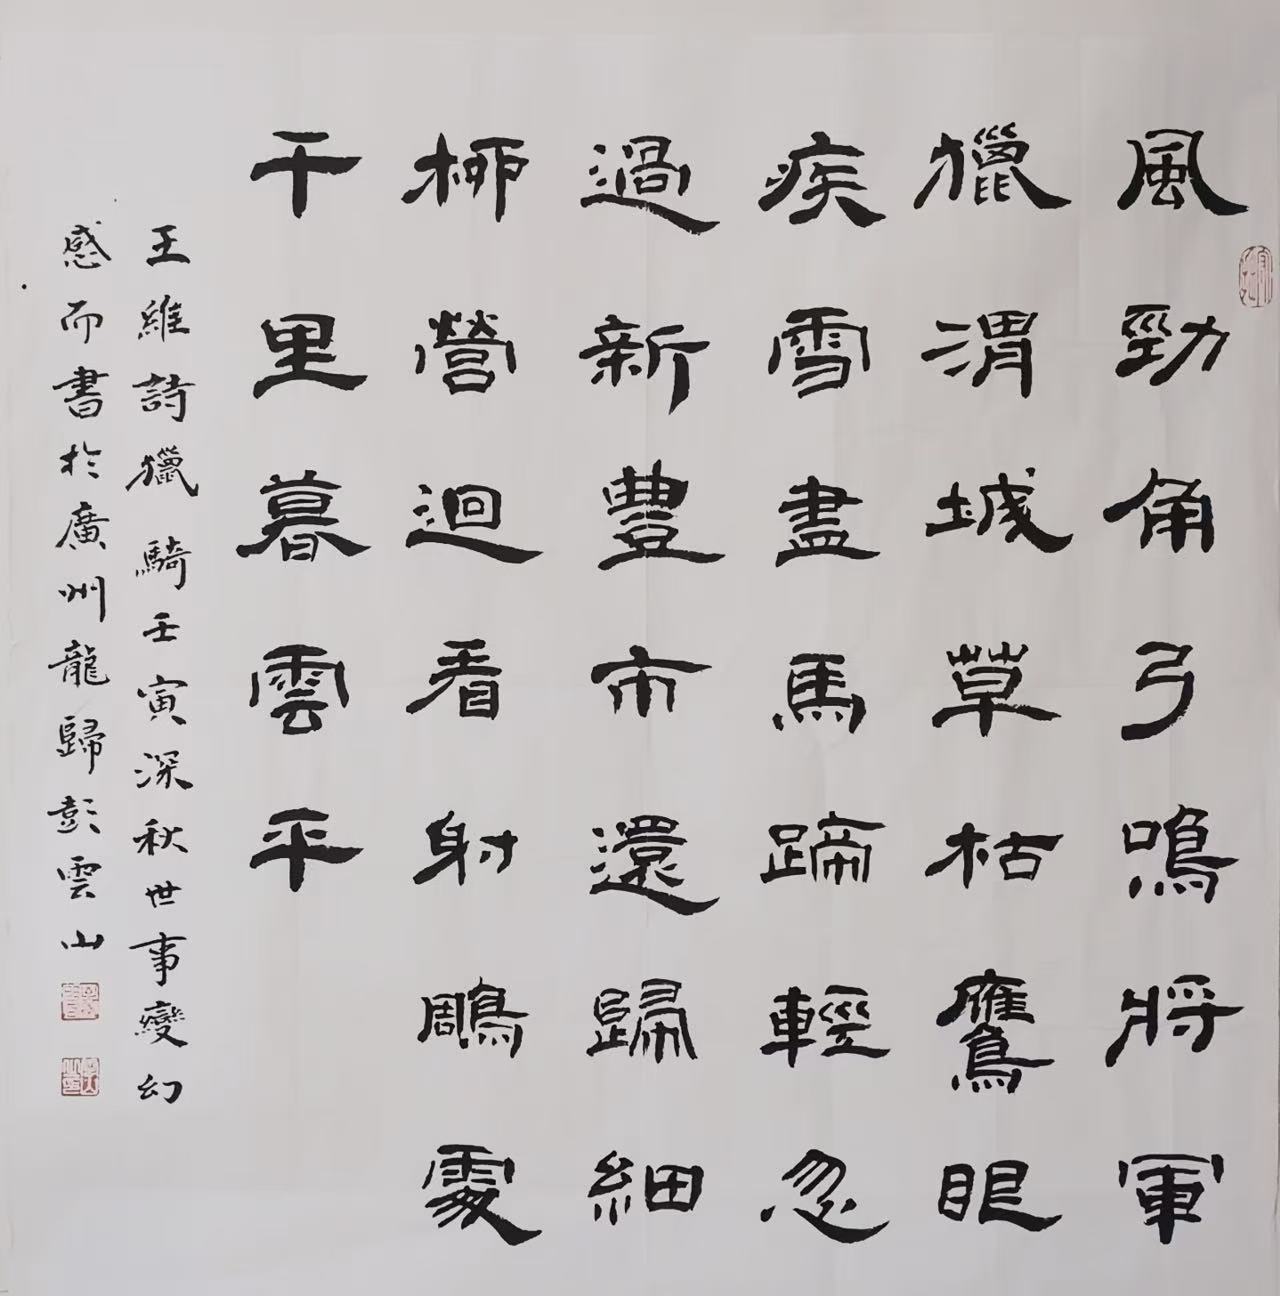 風勁角弓鳴將軍
獵渭城草枯鷹眼
疾雪盡馬蹄輕忽
過新豐市還歸細
柳營迴看射鵰處
千里暮雲平
王維詩獵騎壬寅深秋世事變幻
感而書於廣州龍歸彭雲山